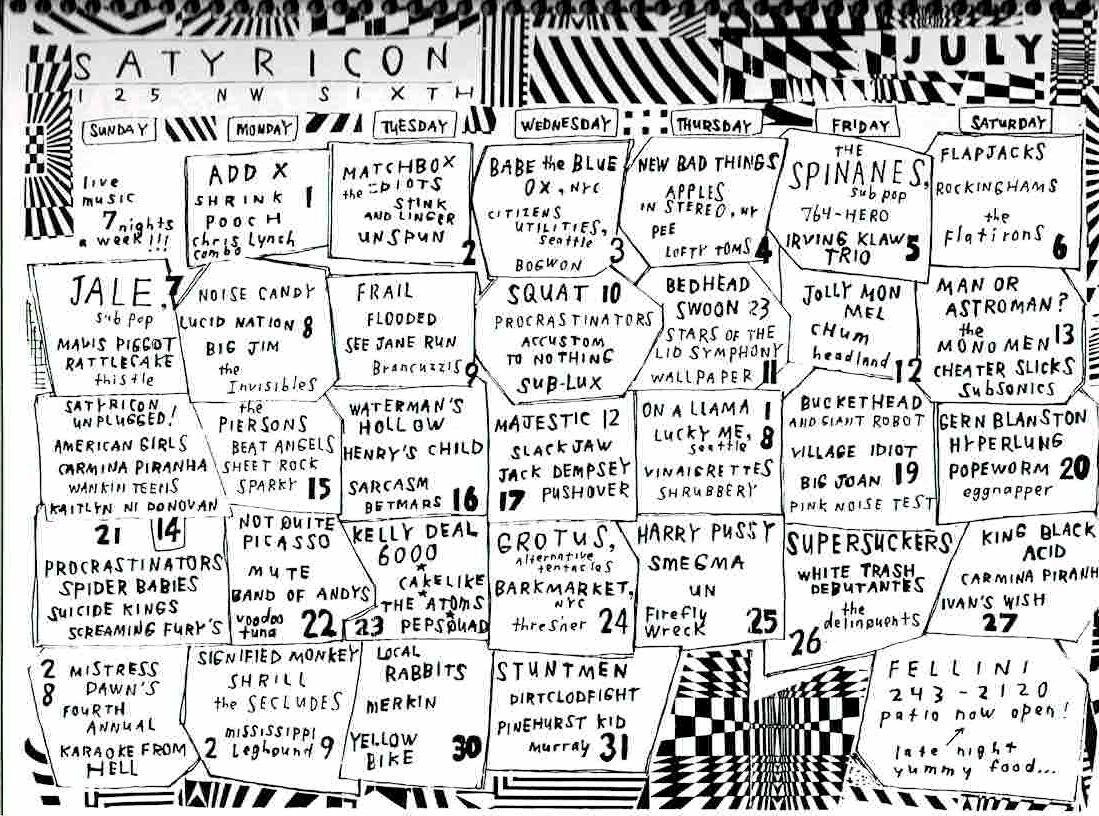 SATYRICON
JULY
125 NW SIXTH
SUNDAY
MONDAY
TUESDAY
WEDNESDAY
THURSDAY
FRIDAY
SATURDAY
live
music
7 nights
a week!!!
ADD X
SHRINK 1
POOCH
chris Lynch
combo
MATCHBOX
the IDIOTS
STINK
AND LINGER
UNSPUN
2
BABE the BLUE
OX, NYC
CITIZENS
UTILITIES,
seattle 3
BOGWON
NEW BAD THINGS
APPLES
IN STEREO, NY
PEE
LOFTY TOMS 4
THE
SPINANES,
sub pop
764-HERO
IRVING KLAW 5
TRIO
FLAPJACKS
ROCKINGHAMS
the
flatirons 6
JALE, 7
sub pop
MAVIS PIGGOT
RATTLECAKE
thistle
NOISE CANDY
LUCID NATION 8
BIG JIM
the
Invisibles
FRAIL
FLOODED
SEE JANE RUN
Brancuzzis 9
SQUAT 10
PROCRASTINATORS
ACCUSTOM
TO NOTHING
SUB-LUX
BEDHEAD
SWOON 23
STARS OF THE
LID SYMPHONY
WALLPAPER 11
JOLLY MON
MEL
CHUM
headland 12
MAN OR
ASTROMAN?
the
MONO MEN 13
CHEATER SLICKS
SUBSONICS
SATYRICON
UNPLUGGED!
AMERICAN GIRLS
CARMINA PIRANHA
WANKIN TEENS
KAITLYN NI DONOVAN
14
the
PIERSONS
BEAT ANGELS
SHEET ROCK
SPARKY 15
WATERMAN'S
HOLLOW
HENRY'S CHILD
SARCASM
BETMARS 16
MAJESTIC 12
SLACKJAW
JACK DEMPSEY
17 PUSHOVER
ON A LLAMA 1
LUCKY ME, 8
seattle
VINAIGRETTES
SHRUBBERY
BUCKETHEAD
AND GIANT ROBOT
VILLAGE IDIOT
BIG JOAN 19
PINK NOISE TEST
GERN BLANSTON
HYPERLUNG
POPEWORM 20
eggnapper
21
PROCRASTINATORS
SPIDER BABIES
SUICIDE KINGS
SCREAMING FURY'S
NOT QUITE
PICASSO
MUTE
BAND OF ANDYS
voodoo
tuna 22
KELLY DEAL
6000
CAKELIKE
THE ATOMS
23 PEPSQUAD
GROTUS,
alternative
tentacles
BARKMARKET,
NYC
thresher 24
HARRY PUSSY
SMEGMA
UN
Firefly
Wreck 25
SUPERSUCKERS
WHITE TRASH
DEBUTANTES
the
delinquents
26
KING BLACK
ACID
CARMINA PIRANH
IVAN'S WISH
27
2 MISTRESS
8 DAWN'S
FOURTH
ANNUAL
KARAOKE FROM
HELL
SIGNIFIED MONKEY
SHRILL
the SECLUDES
mississippi
2 Leghound 9
LOCAL
RABBITS
MERKIN
YELLOW
BIKE 30
STUNTMEN
DIRTCLODFIGHT
PINEHURST KID
Murray 31
FELLINI
243-2120
patio now open!
late night
yummy food...